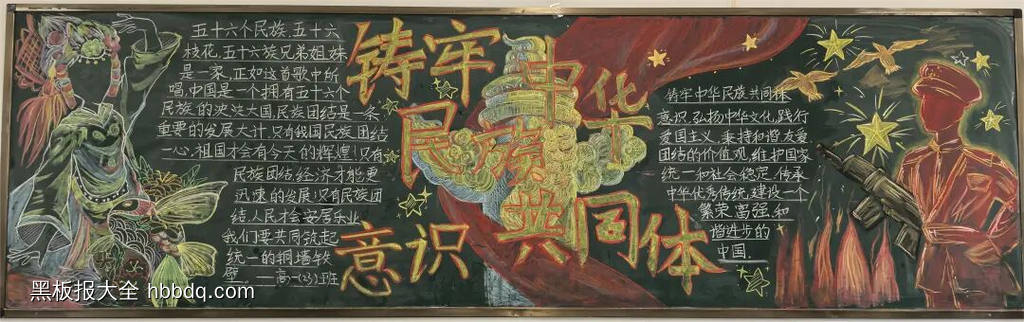 五十六个民族,五十六
枝花,五十六族兄弟姐妹
是一家,正如这首歌中所
唱,中国是一个拥有五十六个
民族的泱泱大国,民族团结是一条
重要的发展大计,只有我国民族团结
一心,祖国才会有今天的辉煌!只有
民族团结,经济才能更
迅速的发展,只有民族团
结,人民才会安居乐业,
我们要共同筑起
统一的铜墙铁
壁.——高一(23)班
铸牢中华
民族
共同体
意识
铸牢中华民族共同体
意识,弘扬中华文化,践行
爱国主义,秉持和谐友爱
团结的价值观,维护国家
统一和社会稳定,传承
中华优秀传统,建设一个
繁荣,富强,和
谐进步的
中国.
黑板报大全 hbbdq.com